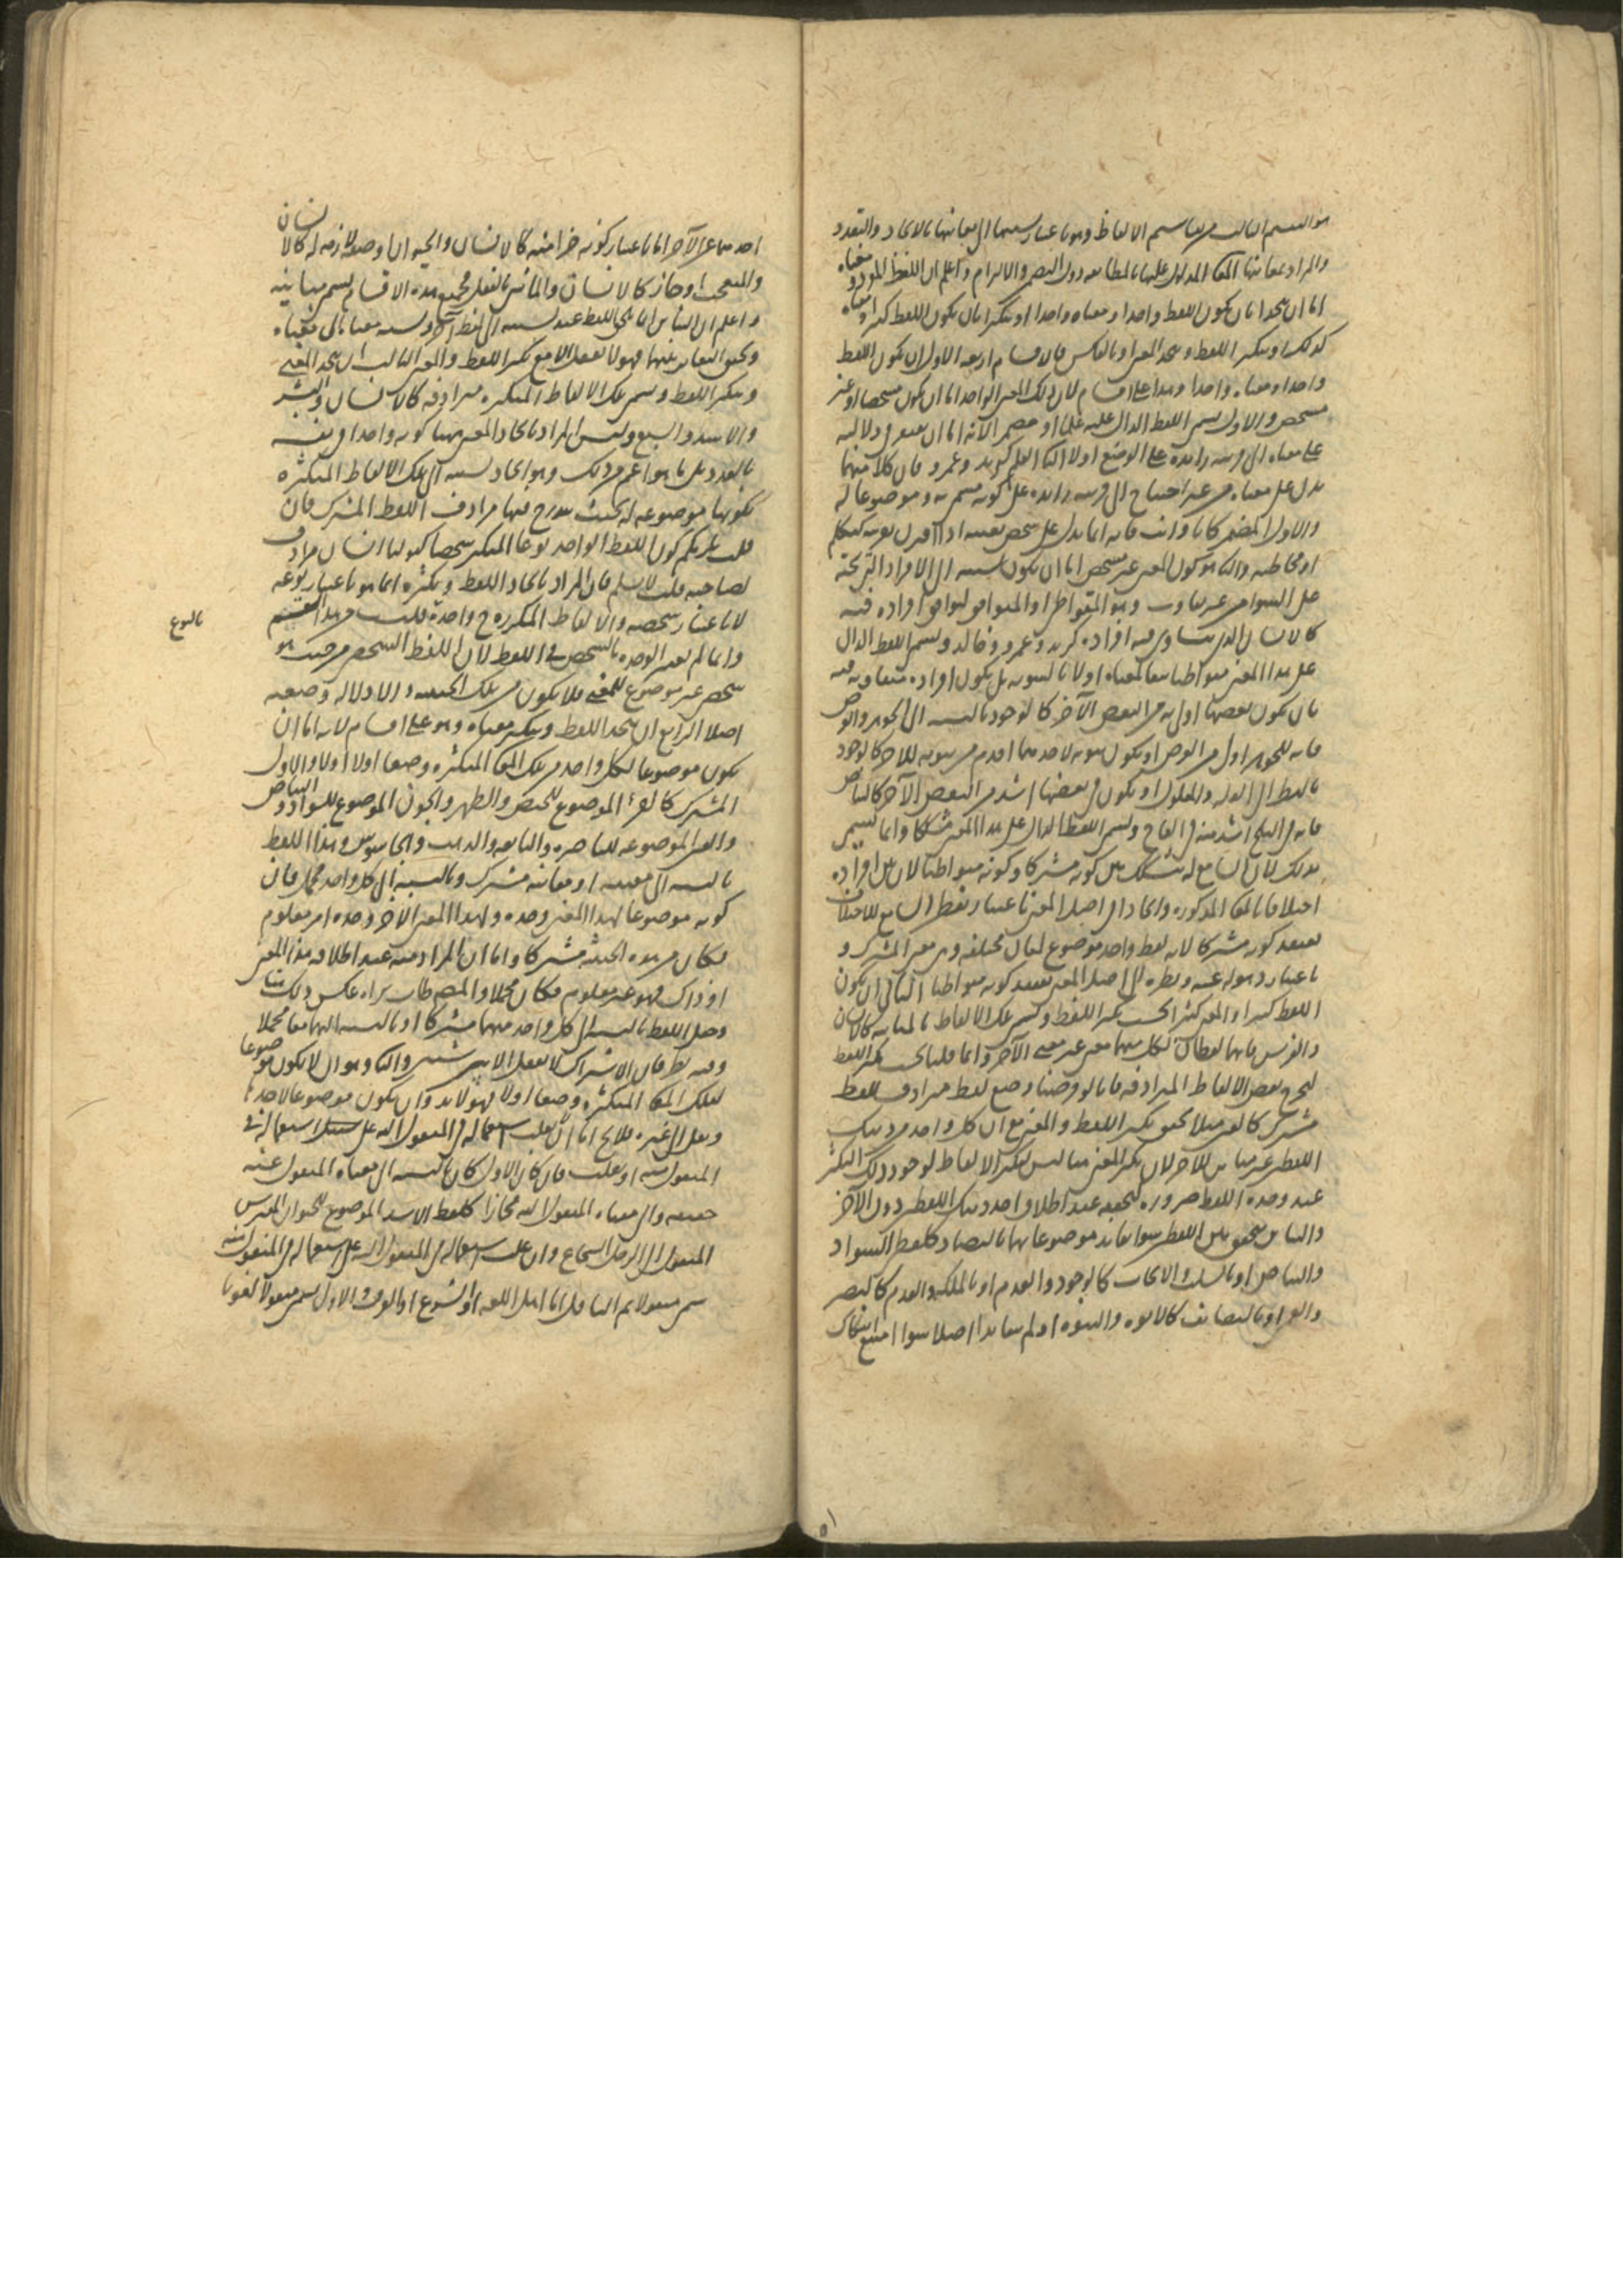 هو القسم الثالث من تقاسيم الالفاظ وهو باعتبار نسبتها الى معانيها بالاتحاد والتعدد
والمراد بمعانيها المعانى المدلول عليها بالمطابقه دون التضمن والالتزام واعلم ان اللفظ المفرد ومعناه
اما ان يتحدا بان يكون اللفظ واحدا ومعناه واحدا او يتكثرا بان يكون اللفظ كثيرا ومعناه
كذلك او يتكثر اللفظ ويتحد المعنى او بالعكس فالاقسام اربعه الاول ان يكون اللفظ
واحدا ومعناه واحدا وهذا على اقسام لان ذلك المعنى الواحد اما ان يكون متشخصا او غير
متشخص والاول يسمى اللفظ الدال عليه علما او مضمرا لانه اما ان يفتقر فى دلالته
على معناه الى قرينه زائدة على الوضع اولا الثانى العلم كزيد وعمرو فان كلا منهما
يدل على معناه من غير احتياج الى قرينه زائده على كونه مسمى به وموضوعا له
والاول المضمر كانا وانت فانه انما يدل على شخص بعينه اذا اقترن بقرينه كتكلم
او مخاطبه والثانى هو كون المعنى غير متشخص اما ان يكون نسبته الى الافراد التى تحته
على السواء من غير تفاوت وهو المتواطى والمتوافق لتوافق افراده فيه
كالانسان الذى يتساوى فيه افراده كزيد وعمرو وخالد ويسمى اللفظ الدال
على هذا المعنى متواطيا تبعا لمعناه اولا بالسويه بل يكون افراده متفاوته فيه
بان يكون بعضها اولى به من البعض الآخر كالوجود بالنسبه الى الجوهر والعرض
فانه للجوهر اولى من العرض او يكون ثبوته لاحدهما اقدم من ثبوته للاخر كالوجود
بالنظر الى العله والمعلول او يكون فى بعضها اشد من البعض الآخر كالبياض
فانه فى الثلج اشد منه فى العاج ويسمى اللفظ الدال على هذا المعنى مشككا وانما يسمى
بذلك لان السامع له يتشكك بين كونه مشتركا وكونه متواطيا لان بين افراده
اختلافا بالمعانى المذكوره واتحادا فى اصل المعنى فباعتبار نظر السامع للاختلاف
يعتقد كونه مشتركا لانه لفظ واحد موضوع لمعان مختلفه وهى معنى المشترك و
باعتبار ذهوله عنه ونظره الى اصل المعنى يعتقد كونه متواطيا الثانى ان يكون
اللفظ كثيرا والمعنى كثيرا بحسب تكثر اللفظ وتسمى تلك الالفاظ بالمتباينه كالانسان
والفرس فانهما لفظان لكل منهما معنى غير معنى الآخر وانما قلنا بحسب تكثر اللفظ
ليخرج بعض الالفاظ المترادفه فانا لو فرضنا وضع لفظ مرادف للفظ
مشترك كالعين مثلا تحقق تكثر اللفظ والمعنى مع ان كل واحد من ذينك
اللفظين غير مباين للآخر لان تكثر المعنى هنا ليس لتكثر الالفاظ لوجود ذلك التكثر
عند وحده اللفظ ضروره تحققه عند اطلاق احد ذينك اللفظين دون الآخر
والتباين يتحقق بين اللفظين سوا تعاند موضوعاهما بالتضاد كلفظ السواد
والبياض او بالسلب والايجاب كالوجود والعدم او بالملكه والعدم كالبصر
والعمى او بالتضايف كالابوه والبنوه او لم يتعاندا اصلا سوا امتنع انفكاك
احدهما عن الآخر اما باعتبار كونه جزا منه كالانسان والحيوان او صفه لازمه له كالانسان
والمتعجب او جاز كالانسان والماشى بالفعل فجميع هذه الاقسام يسمى متباينه
واعلم ان التباين انما يلحق اللفظ عند نسبته الى لفظ آخر ونسبه معناه الى معناه
وتحقق التغاير بينهما فهو لا يعقل الا مع تكثر اللفظ والمعنى الثالث ان يتحد المعنى
ويتكثر اللفظ وتسمى تلك الالفاظ المتكثره مترادفه كالانسان والبشر
والاسد والسبع وليس المراد باتحاد المعنى هنا كونه واحدا فى نفسه
بالعدد بل ما هو اعم من ذلك وهو اتحاد نسبته الى تلك الالفاظ المتكثره
بكونها موضوعه له بحيث يندرج فيها مرادف اللفظ المشترك فان
قلت يلزمكم كون اللفظ الواحد نوعا المتكثر شخصا كقولنا انسان مرادف
لصاحبه قلت لا نسلم فان المراد باتحاد اللفظ وتكثره انما هو باعتبار نوعه
لا باعتبار شخصه والالفاظ المتكرره ح واحدة قلت فى هذا القسم
بالنوع
وانما لم يعتبر الوحده بالشخص فى اللفظ لان اللفظ الشخصى من حيث هو
شخصى غير موضوع للمعنى فلا يكون من تلك الحيثيه دالا دلاله وضعيه
اصلا الرابع ان يتحد اللفظ ويتكثر معناه وهو على اقسام لانه اما ان
يكون موضوعا لكل واحد من تلك المعانى المتكثره وضعا اولا اولا والاول
المشترك كالقرء الموضوع للحيض والطهر والجون الموضوع للسواد والبياض
والعين الموضوعه للباصره والنابعه والذهب والجاسوس وهذا اللفظ
بالنسبه الى معنييه او معانيه مشترك وبالنسبه الى كل واحد مجمل فان
كونه موضوعا لهذا المعنى وحده ولهذا المعنى الآخر وحده امر معلوم
فكان من هذه الحيثيه مشتركا واما ان المراد منه عند اطلاقه هذا المعنى
او ذاك فهو غير معلوم فكان مجملا والمصنف طاب ثراه عكس ذلك هنا
وجعل اللفظ بالنسبه الى كل واحد منهما مشتركا وبالنسبه اليهما معا مجملا
وفيه نظر فان الاشتراك لا يعقل الا بين شيئين والثانى وهو ان لا يكون موضوعا
لتلك المعانى المتكثره وضعا اولا فهو لابد وان يكون موضوعا لاحدها
ونقل الى غيره فلا يخ اما ان يغلب استعماله فى المنقول اليه على استعماله فى
المنقول منه او يغلب فان كان الاول كان بالنسبه الى معناه المنقول عنه
حقيقه والى معناه المنقول اليه مجازا كلفظ الاسد الموضوع للحيوان المفترس
المنقول الى الرجل الشجاع وان غلب استعماله فى المنقول اليه على استعماله فى المنقول منه
سمى منقولا ثم الناقل اما اهل اللغه او الشرع او العرف والاول يسمى منقولا لغويا